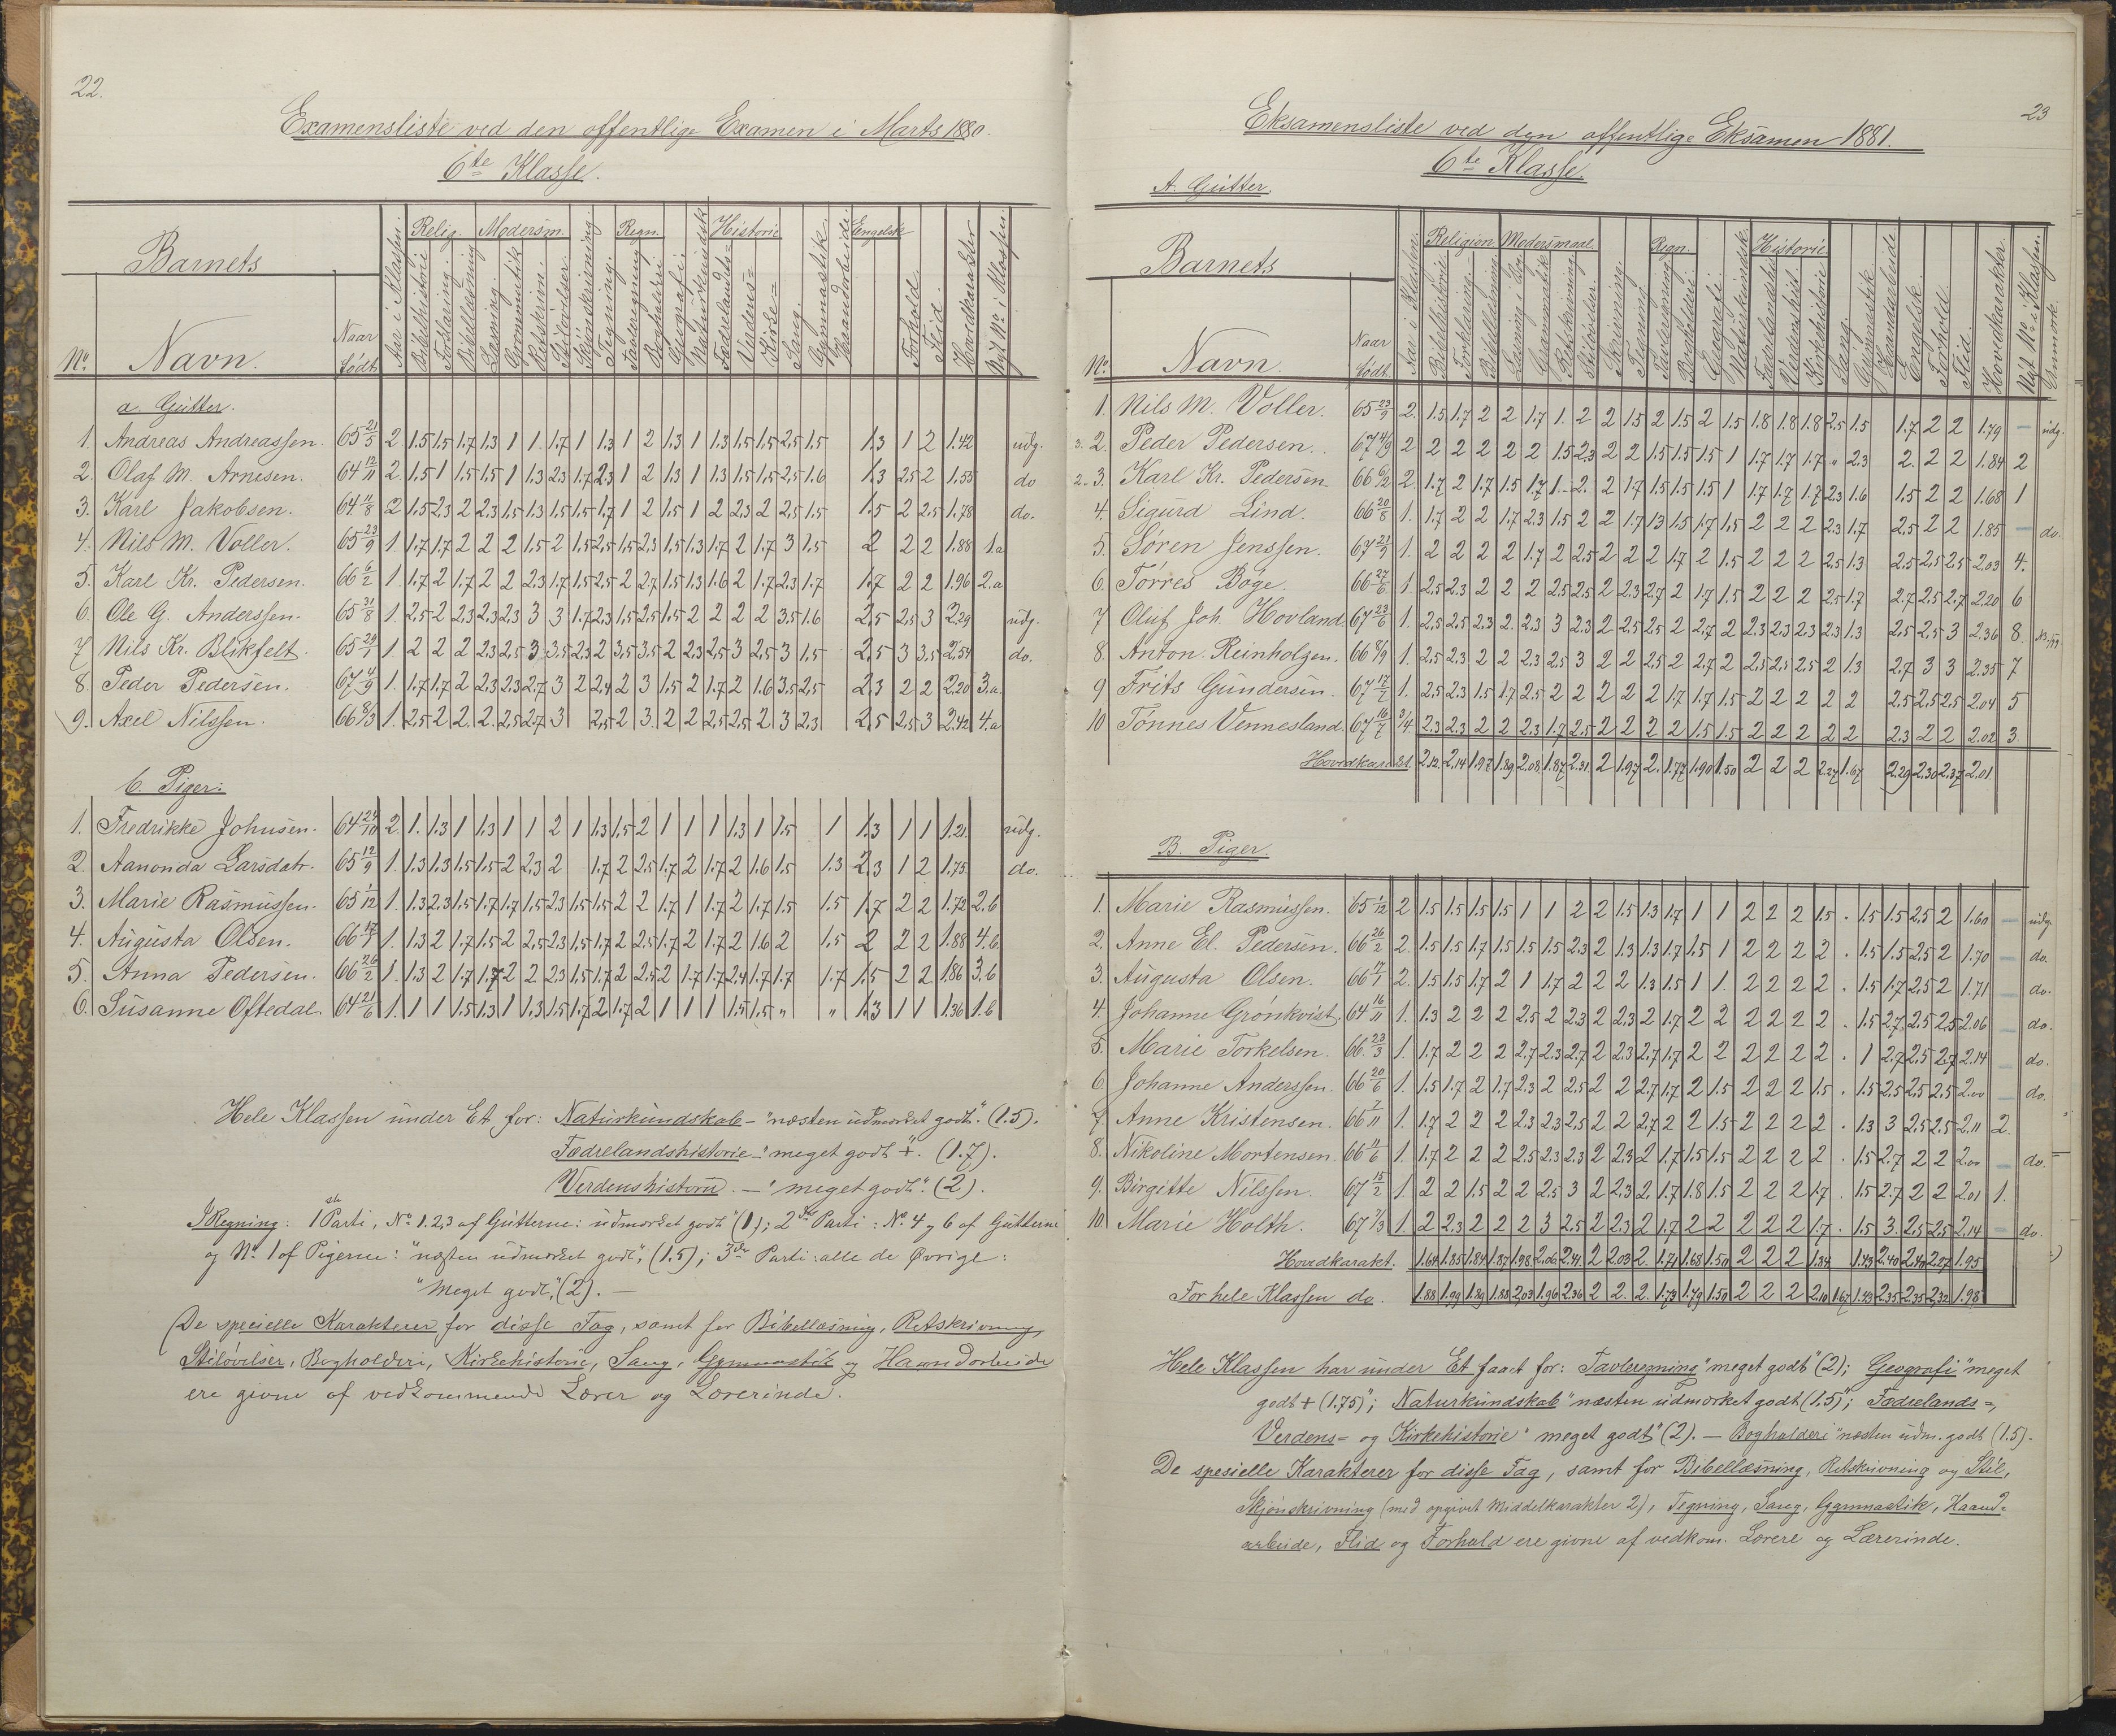 22.
Examensliste ved den offentlige Examen i Marts 1880.
6te Klasse.
Barnets
No. Navn. Naar født
Aar i Klassen.
Relig. Modersm. Regn. Historie Engelsk
Bibelhistorie Forklaring Bibellæsning Læsning Grammatik Retskrivn. Stiløvelser Skjønskrivning. Tegning. Tavleregning Bogholderi Geografi. Naturkundsk. Fædrelands= Verdens= Kirke= Sang. Gymnastik Haandarbeide Forhold. Flid. Hovedkarakter Nyt No. i Klassen.
a. Gutter.
1. Andreas Andreassen. 65 21/5 2 1.5 1.5 1.7 1.3 1 1 1.7 1 1.3 1 2 1.3 1 1.3 1.5 1.5 2.5 1.5 1.3 1 2 1.42 udg.
2. Olaf M. Arnesen. 64 12/11 2 1.5 1 1.5 1.5 1 1.3 2.3 1.7 2.3 1 2 1.3 1 1.3 1.5 1.5 2.5 1.6 1.3 2.5 2 1.55 do
3. Karl Jakobsen. 64 11/8 2 1.5 2.3 2 2.3 1.5 1.3 1.5 1.5 1.7 1 2 1.5 1 2 2.3 2 2.5 1.5 1.5 2 2.5 1.78 do.
4. Nils M. Voller. 65 23/9 1 1.7 1.7 2 2 2 1.5 2 1.5 2.5 1.5 2.3 1.5 1.3 1.7 2 1.7 3 1.5 2 2 2 1.88 1.a
5. Karl Kr. Pedersen. 66 6/2 1 1.7 2 1.7 2 2 2.3 1.7 1.5 2.5 2 2.7 1.5 1.3 1.6 2 1.7 2.3 1.7 1.7 2 2 1.96 2.a
6. Ole G. Anderssen. 65 31/8 1. 2.5 2 2.3 2.3 2.3 3 3 1.7 2.3 1.5 2.5 1.5 2 2 2 2 3.5 1.6 2.5 2.5 3 2.29 udg.
7 Nils Kr. Blikfelt. 65 29/1 1. 2 2 2 2.3 2.5 3 3.5 2.3 2 3.5 3.5 2 2.3 2.5 3 2.5 3 1.5 2.5 3 3.5 2.54 do.
8. Peder Pedersen. 67 4/9 1. 1.7 1.7 2 2.3 2.3 2.7 3 2 2.4 2 3 1.5 2 1.7 2 1.6 3.5 2.5 2.3 2 2 2.20 3.a.
9. Axel Nilssen. 66 8/3 1. 2.5 2 2. 2. 2.5 2.7 3 2.5 2 3. 2 2 2.5 2.5 2 3 2.3 2.5 2.5 3 2.42 4.a
b. Piger:
1. Fredrikke Johnsen. 64 25/10 2. 1. 1.3 1 1.3 1 1 2 1 1.3 1.5 2 1 1 1 1.3 1 1.5 1 1.3 1 1 1.21. udg.
2. Aanonda Larsdatr. 65 12/9 1. 1.3 1.3 1.5 1.5 2 2.3 2 1.7 2 2.5 1.7 2 1.7 2 1.6 1.5 1.3 2.3 1 2 1.75. do.
3. Marie Rasmussen. 65 1/12 1. 1.3 2.3 1.5 1.7 1.7 1.5 2.3 1.5 1.5 2 2 1.7 1 1.7 2 1.7 1.5 1.5 1.7 2 2 1.72 2.b
4. Augusta Olsen. 66 17/1 1. 1.3 2 1.7 1.5 2 2.5 2.3 1.5 1.7 2 2.5 1.7 2 1.7 2 1.6 2 1.5 2 2 2 1.88 4.b.
5. Anna Pedersen. 66 26/2 1. 1.3 2 1.7 1.7 2 2 2.3 1.5 1.7 2 2.5 2 1.7 1.7 2.4 1.7 1.7 1.7 1.5 2 2 1.86 3.b
6. Susanne Oftedal. 64 21/6 1. 1 1 1.5 1.3 1 1.3 1.5 1.7 2 1.7 2 1 1 1 1.5 1.5 " " 1.3 1 1 1.36 1.b
Hele Klassen under Et for: Naturkundskab - "næsten udmærket godt." (1.5).
Fædrelandshistorie - "meget godt +." (1.7).
Verdenshistorie. - "meget godt". (2).
I Regning: 1ste Parti, No. 1.2.3 af Gutterne: udmærket godt "(1); 2det Parti: No. 4 og 6 af Gutterne
og No. 1 af Pigerne: "næsten udmærket godt," (1.5); 3die Parti: alle de øvrige:
"Meget godt," (2). -
De specielle Karakterer for disse Fag, samt for Bibellæsning, Retskrivning,
Stiløvelser, Bogholderi, Kirkehistorie, Sang, Gymnastik og Haandarbeide
ere givne af vedkommende Lærer og Lærerinde.
23
Eksamensliste ved den offentlige Eksamen 1881.
6te Klasse.
A. Gutter.
Barnets
No. Navn. Naar født.
Aar i Klassen.
Religion Modersmaal. Regn. Historie
Bibelhistorie Forklaring. Bibellæsning Læsning Grammatik Retskrivning Stiløvelser. Skrivning. Tegning. Tavleregning Bogholderi. Geografi. Naturkundsk. Fædrelandshist. Verdenshist. Kirkehistorie Sang. Gymnastik. Haandarbeide Engelsk Forhold. Flid. Hovedkarakter. Nyt No. i Klassen. Anmærk.
1. Nils M. Voller. 65 23/9 2. 1.5 1.7 2 2 1.7 1. 2 2 1.5 2 1.5 2 1.5 1.8 1.8 1.8 2.5 1.5 1.7 2 2 1.79 - udg.
3. 2. Peder Pedersen. 67 4/9 2 2 2 2 2 2 1.5 2.3 2 2 1.5 1.5 1.5 1 1.7 1.7 1.7 " 2.3 2. 2 2 1.84 2
2. 3. Karl Kr. Pedersen 66 6/2 2. 1.7 2 1.7 1.5 1.7 1. 2. 2 1.7 1.5 1.5 1.5 1 1.7 1.7 1.7 2.3 1.6 1.5 2 2 1.68 1
4. Sigurd Lind. 66 20/8 1. 1.7 2 2 1.7 2.3 1.5 2 2 1.7 1.3 1.5 1.7 1.5 2 2 2 2.3 1.7 2.5 2 2 1.85 - do.
5. Søren Jenssen. 67 21/9 1. 2 2 2 2 1.7 2 2.5 2 2 2 1.7 2 1.5 2 2 2 2.5 1.3 2.5 2.5 2.5 2.03 4.
6. Torres Bøge. 66 27/6 1. 2.5 2.3 2 2 2 2.5 2.5 2 2.3 2.7 2 1.7 1.5 2 2 2 2.5 1.7 2.7 2.5 2.7 2.20 6
7 Oluf Joh. Hovland 67 23/6 1. 2.5 2.5 2.3 2. 2.3 3 2.3 2 2.5 2.5 2 2.7 2 2.3 2.3 2.3 2.3 1.3 2.5 2.5 3 2.36 8.
8. Anton Reinholzen. 66 8/9 1. 2.5 2.3 2 2 2.3 2.5 3 2 2 2.5 2 2.7 2 2.5 2.5 2.5 2 1.3 2.7 3 3 2.35 7
9 Frits Gundersen. 67 17/7 1. 2.5 2.3 1.5 1.7 2.5 2 2 2 2 2 1.7 1.7 1.5 2 2 2 2 2 2.5 2.5 2.5 2.04 5
10 Tønnes Vennesland. 67 16/7 3/4. 2.3 2.3 2 2 2.3 1.7 2.5 2 2 2 2 1.5 1.5 2 2 2 2 2 2.3 2 2 2.02 3
Hovedkarakt. 2.12 2.14 1.97 1.89 2.08 1.87 2.31 2 1.97 2. 1.77 1.90 1.50 2 2 2 2.27 1.67 2.29 2.30 2.37 2.01
B. Piger.
1. Marie Rasmussen. 65 1/12 2 1.5 1.5 1.5 1.5 1 1 2 2 1.5 1.3 1.7 1 1 2 2 2 1.5 . 1.5 1.5 2.5 2 1.60 - udg.
2. Anne El. Pedersen. 66 26/2 2. 1.5 1.5 1.7 1.5 1.5 1.5 2.3 2 1.3 1.3 1.7 1.5 1 2 2 2 2 . 1.5 1.5 2.5 2 1.70 - do.
3. Augusta Olsen. 66 17/1 2. 1.5 1.5 1.7 2 1 1.7 2 2 2 1.3 1.5 1 1. 2 2 2 2 . 1.5 1.7 2.5 2 1.71 - do.
4. Johanne Grønkvist. 64 16/11 1. 1.3 2 2 2 2.5 2 2.3 2 2.3 2 1.7 2 2 2 2 2 2 . 1.5 2.7 2.5 2.5 2.06 - do.
5. Marie Torkelsen. 66 23/3 1. 1.7 2 2 2 2.7 2.3 2.7 2 2.3 2.7 1.7 2 2 2 2 2 2 . 1 2.7 2.5 2.7 2.14 - do.
6. Johanne Anderssen. 66 20/6 1. 1.5 1.7 2 1.7 2.3 2 2.5 2 2 2.7 1.7 2 1.5 2 2 2 1.5 . 1.5 2.5 2.5 2.5 2.00 - do.
7. Anne Kristensen. 66 7/11 1. 1.7 2 2 2 2.3 2.3 2.5 2 2 2.7 2 2 1.5 2 2 2 2 . 1.3 3 2.5 2.5 2.11 2.
8. Nikoline Mortensen. 66 11/6 1. 1.7 2 2 2 2.5 2.3 2.3 2 2.3 2 1.7 1.5 1.5 2 2 2 2 . 1.5 2.7 2 2 2.00 - do.
9. Birgitte Nilssen. 67 15/2 1. 2 2 1.5 2 2 2.5 3 2 2.3 2. 1.7 1.8 1.5 2 2 2 1.7 . 1.5 2.7 2 2 2.01 1.
10. Marie Holth. 67 7/3 1. 2 2.3 2 2 2 3 2.5 2 2.3 2 1.7 2 2 2 2 2 1.7 . 1.5 3. 2.5 2.5 2.14 - do.
Hovedkarakt. 1.64 1.85 1.84 1.87 1.98 2.06 2.41 2 2.03 2. 1.71 1.68 1.50 2 2 2 1.84 1.43 2.40 2.40 2.27 1.95
For hele Klassen do. 1.88 1.99 1.89 1.88 2.03 1.96 2.36 2 2. 2. 1.73 1.79 1.50 2 2 2 2.10 1.67 1.43 2.35 2.35 2.32 1.98
Hele Klassen har under Et faaet for: Tavleregning "meget godt" (2); Geografi "meget
godt + (1.75)"; Naturkundskab "næsten udmærket godt (1.5)"; Fædrelands=,
Verdens= og Kirkehistorie "meget godt" (2). - Bogholderi "næsten udm. godt (1.5).
De spesielle Karakterer for disse Fag, samt for Bibellæsning, Retskrivning og Stil,
Skjønskrivning (med opgivet Middelkarakter 2), Tegning, Sang, Gymnastik, Haand=
arbeide, Flid og Forhold ere givne af vedkom. Lærere og Lærerinde.